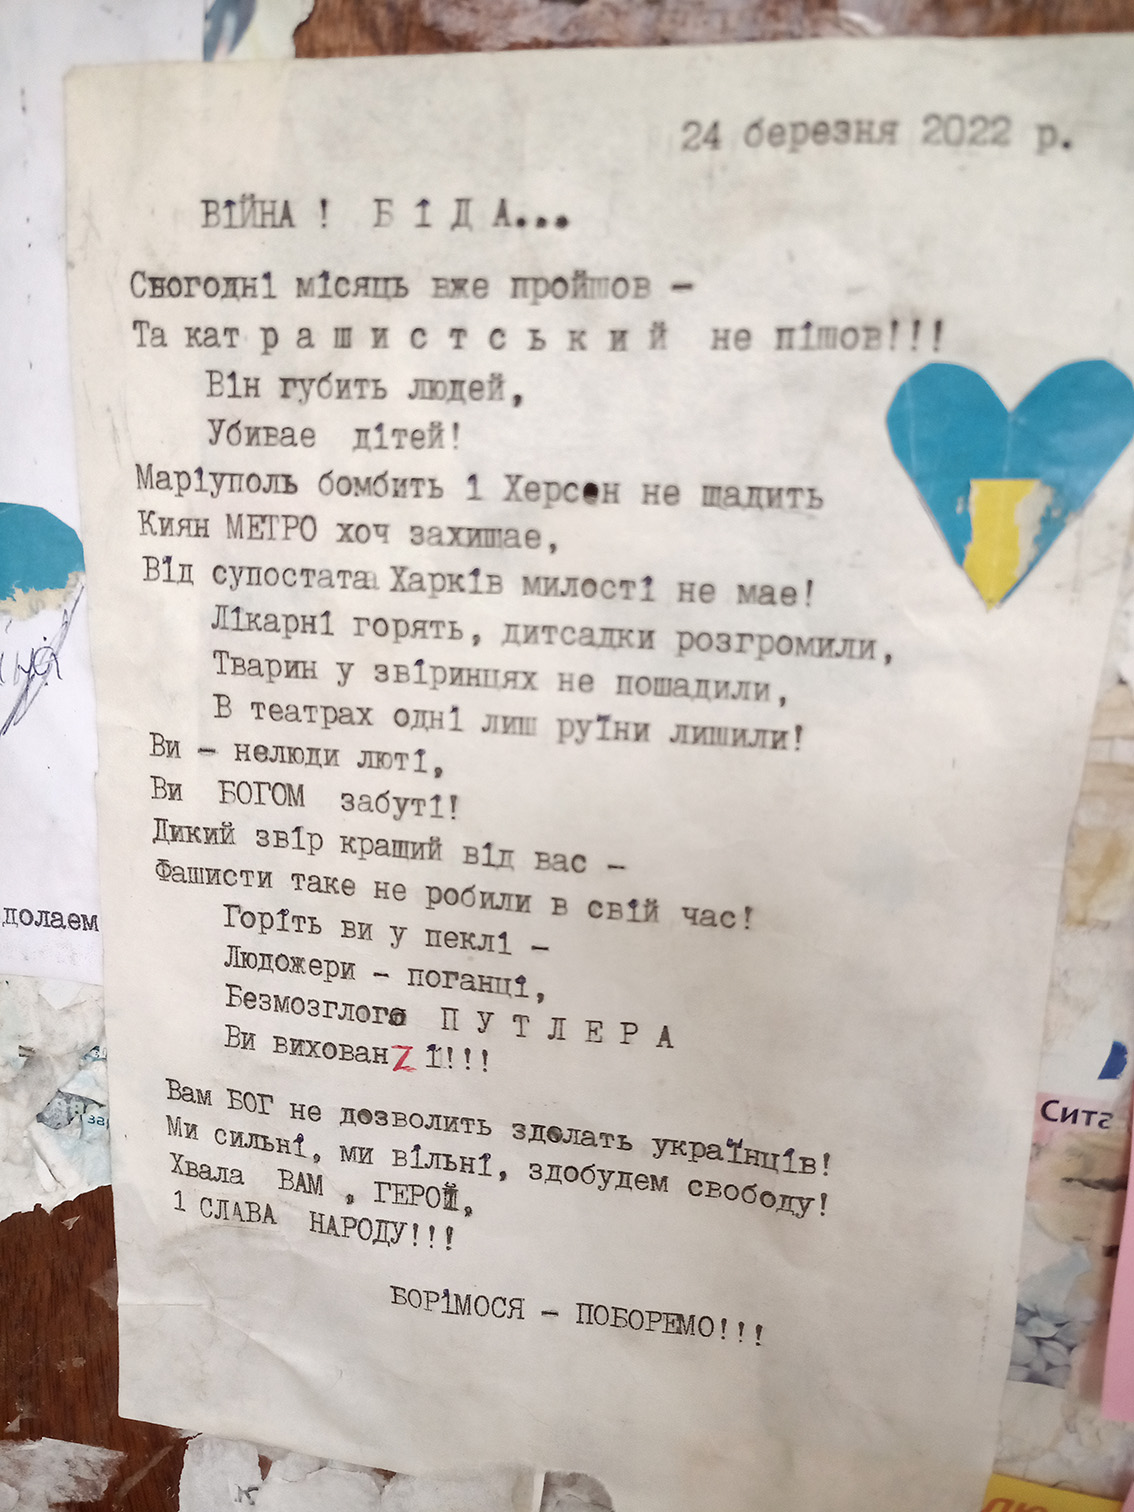 24 березня 2022 р.
ВІЙНА ! Б І Д А...
Сьогодні місяць вже пройшов –
Та кат р а ш и с т с ь к и й не пішов!!!
Він губить людей,
Убивае дітей!
Маріуполь бомбить і Херсон не щадить
Киян МЕТРО хоч захищае,
Від супостата Харків милості не мае!
Лікарні горять, дитсадки розгромили,
Тварин у звіринцях не пощадили,
В театрах одні лиш руїни лишили!
Ви – нелюди люті,
Ви БОГОМ забуті!
Дикий звір кращий від вас –
Фашисти таке не робили в свій час!
Горіть ви у пеклі –
Людожери – поганці,
Безмозглого П У Т Л Е Р А
Ви вихованZі!!!
Вам БОГ не дозволить здолать українців!
Ми сильні, ми вільні, здобудем свободу!
Хвала ВАМ , ГЕРОЇ,
І СЛАВА НАРОДУ!!!
БОРІМОСЯ – ПОБОРЕМО!!!
долаем
Сита